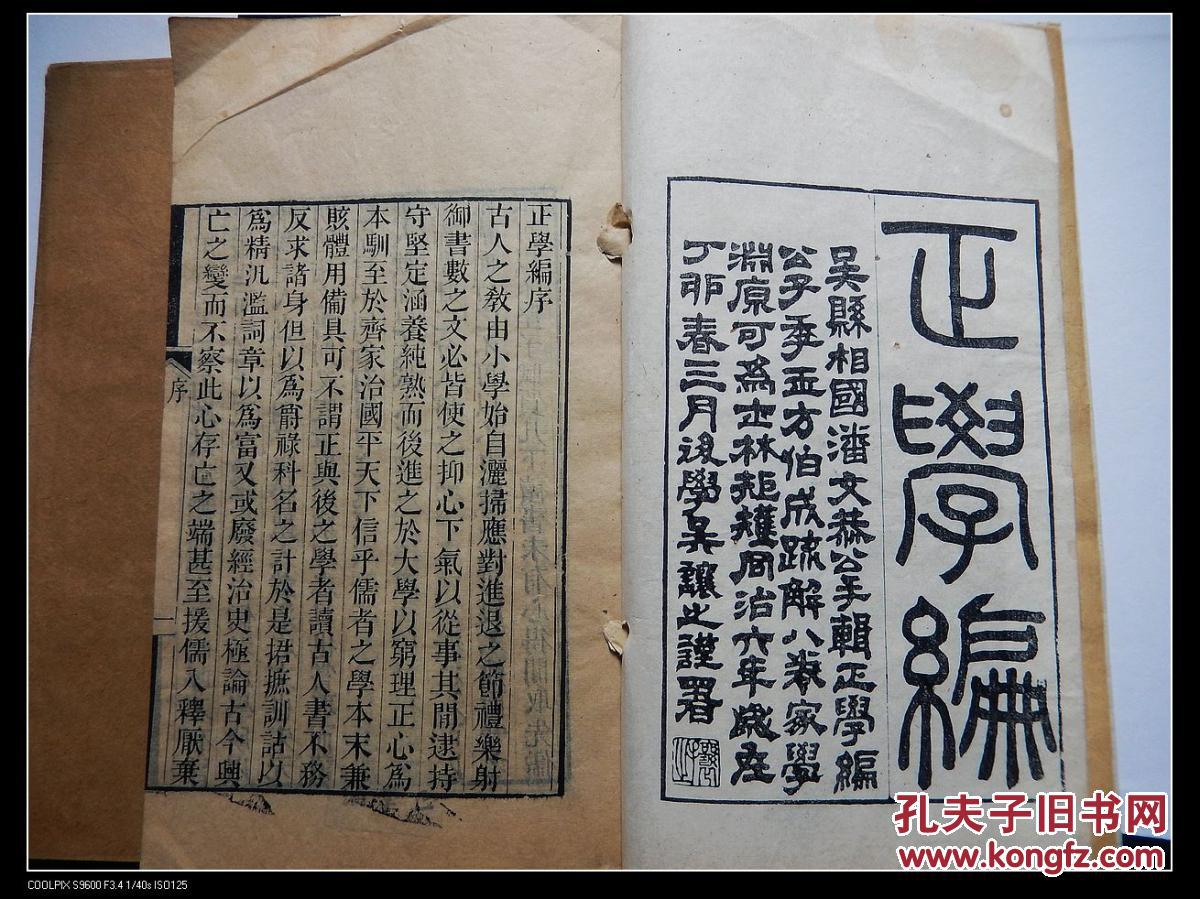 正學編
吳縣相國潘文恭公手輯正學編
公子季玉方伯成疏解八卷家學
淵原可為士林矩矱同治六年歲在
丁卯春三月後學吳讓之謹署
正學編序
古人之敎由小學始自灑掃應對進退之節禮樂射
御書數之文必皆使之抑心下氣以從事其閒逮持
守堅定涵養純熟而後進之於大學以窮理正心爲
本馴至於齊家治國平天下信乎儒者之學本末兼
賅體用備具可不謂正與後之學者讀古人書不務
反求諸身但以爲爵祿科名之計於是捃摭訓詁以
爲精汎濫詞章以爲富又或廢經治史極論古今興
亡之變而不察此心存亡之端甚至援儒入釋厭棄
序
一
孔夫子旧书网
www.kongfz.com
COOLPIX S9600 F3.4 1/40s ISO125